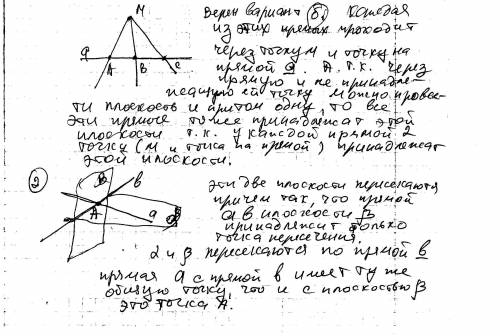 М
а
А В С
Верен вариант б). Каждая
из этих прямых проходит
через точку М и точку на
прямой а. А т.к. через
прямую и не принадле-
жащую ей точку можно провес-
ти плоскость и притом одну, то все
эти прямые тоже принадлежат этой
плоскости т.к. у каждой прямой 2
точки (М и точка на прямой) принадлежат
этой плоскости.
2
β в
А а α
эти две плоскости пересекаются
причем так, что прямой
а в плоскости β
принадлежит только
точка пересечения.
α и β пересекаются по прямой в
прямая а с прямой в имеет ту же
общую точку, что и с плоскостью β
это точка А.